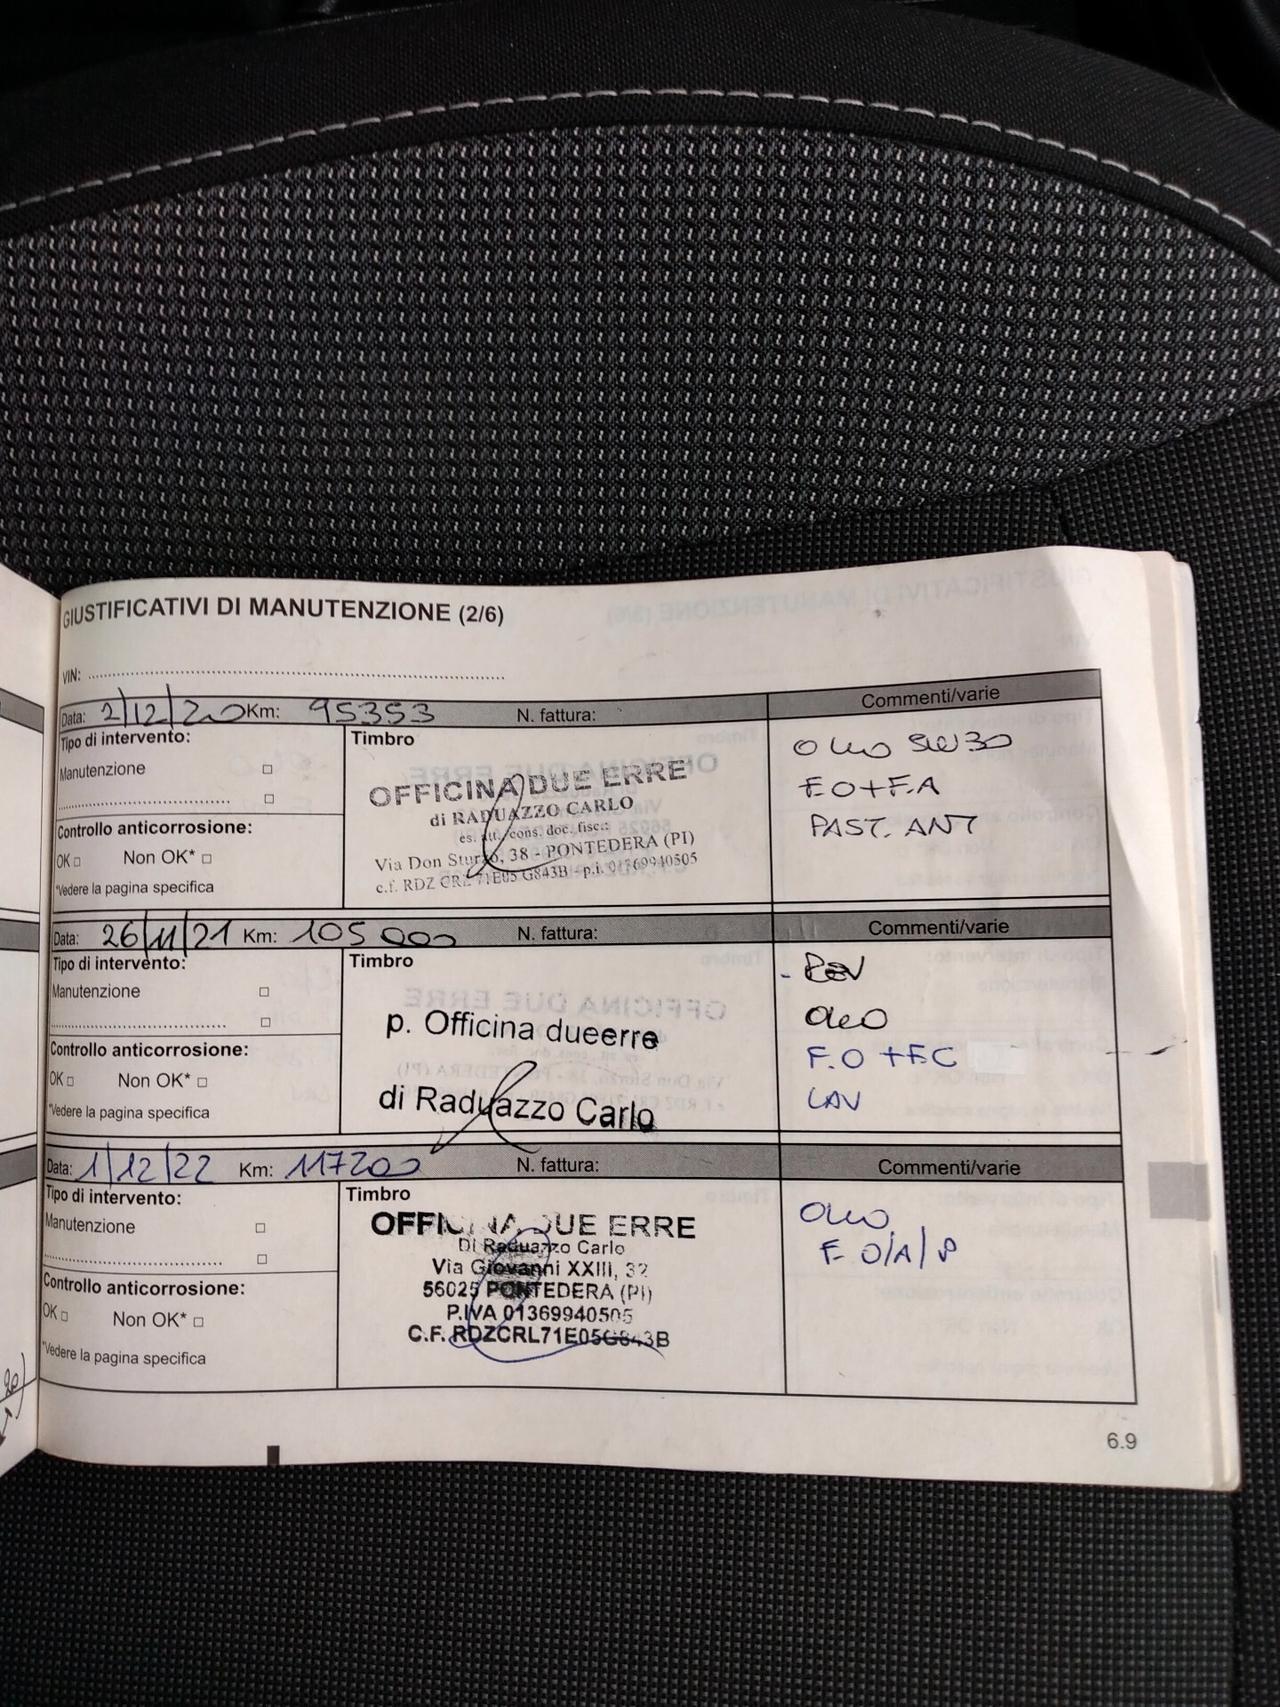 GIUSTIFICATIVI DI MANUTENZIONE (2/6)
VIN:
Data: 2/12/20 Km: 95353 N. fattura: Commenti/varie
Tipo di intervento:
Manutenzione
Controllo anticorrosione:
OK Non OK*
*Vedere la pagina specifica
Timbro
OFFICINA DUE ERRE
di RADUAZZO CARLO
es. att./cons. doc. fisc.:
Via Don Sturzo, 38 - PONTEDERA (PI)
c.f. RDZ CRL 71E05 G843B - p.i. 01369940505
OLIO 5W30
F.O+F.A
PAST. ANT
Data: 26/11/21 Km: 105000 N. fattura: Commenti/varie
Tipo di intervento:
Manutenzione
Controllo anticorrosione:
OK Non OK*
*Vedere la pagina specifica
Timbro
p. Officina dueerre
di Raduazzo Carlo
- REV
OLIO
F.O +F.C
LAV
Data: 1/12/22 Km: 117200 N. fattura: Commenti/varie
Tipo di intervento:
Manutenzione
Controllo anticorrosione:
OK Non OK*
*Vedere la pagina specifica
Timbro
OFFICINA DUE ERRE
Di Raduazzo Carlo
Via Giovanni XXIII, 32
56025 PONTEDERA (PI)
P.IVA 01369940505
C.F. RDZCRL71E05G843B
OLIO
F. O/A/P
6.9